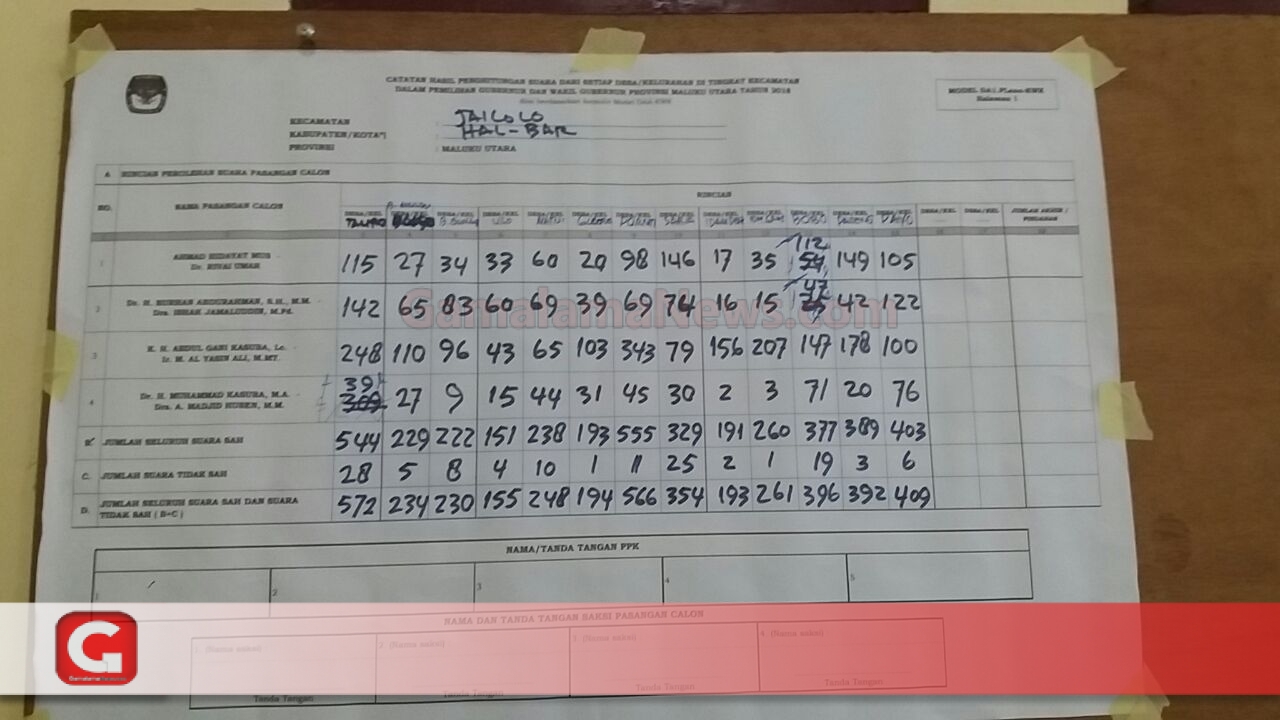 CATATAN HASIL PENGHITUNGAN SUARA DARI SETIAP DESA/KELURAHAN DI TINGKAT KECAMATAN
DALAM PEMILIHAN GUBERNUR DAN WAKIL GUBERNUR PROVINSI MALUKU UTARA TAHUN 2018
MODEL DA1.Plano-KWK
Halaman 1
KECAMATAN JAILOLO
KABUPATEN/KOTA*) : HAL-BAR
PROVINSI : MALUKU UTARA
A RINCIAN PEROLEHAN SUARA PASANGAN CALON
NO. NAMA PASANGAN CALON RINCIAN
DESA/KEL DESA/KEL DESA/KEL DESA/KEL DESA/KEL DESA/KEL DESA/KEL DESA/KEL DESA/KEL DESA/KEL DESA/KEL DESA/KEL DESA/KEL DESA/KEL JUMLAH AKHIR /
PINDAHAN
1 AHMAD HIDAYAT MUS 115 27 34 33 60 20 98 146 17 35 112 149 105
Dr. RIVAI UMAR
2 Dr. H. BURHAN ABDURAHMAN, S.H., M.M. 142 65 83 60 69 39 69 74 16 15 47 42 122
Drs. ISHAK JAMALUDDIN, M.Pd.
GamalamaNews.com
3 K. H. ABDUL GANI KASUBA, Lc. 248 110 96 43 65 103 343 79 156 207 147 178 100
Ir. M. AL YASIN ALI, M.MT.
4 Dr. H. MUHAMMAD KASUBA, M.A. 39 27 9 15 44 31 45 30 2 3 71 20 76
Drs. A. MADJID HUSEN, M.M.
B. JUMLAH SELURUH SUARA SAH 544 229 222 151 238 193 555 329 191 260 377 389 403
C. JUMLAH SUARA TIDAK SAH 28 5 8 4 10 1 11 25 2 1 19 3 6
D. JUMLAH SELURUH SUARA SAH DAN SUARA 572 234 230 155 248 194 566 354 193 261 396 392 409
TIDAK SAH ( B+C )
NAMA/TANDA TANGAN PPK
1 2 3 4 5
NAMA DAN TANDA TANGAN SAKSI PASANGAN CALON
1. (Nama saksi) 2. (Nama saksi) 3. (Nama saksi) 4. (Nama saksi)
Tanda Tangan Tanda Tangan Tanda Tangan Tanda Tangan
G
GamalamaNews